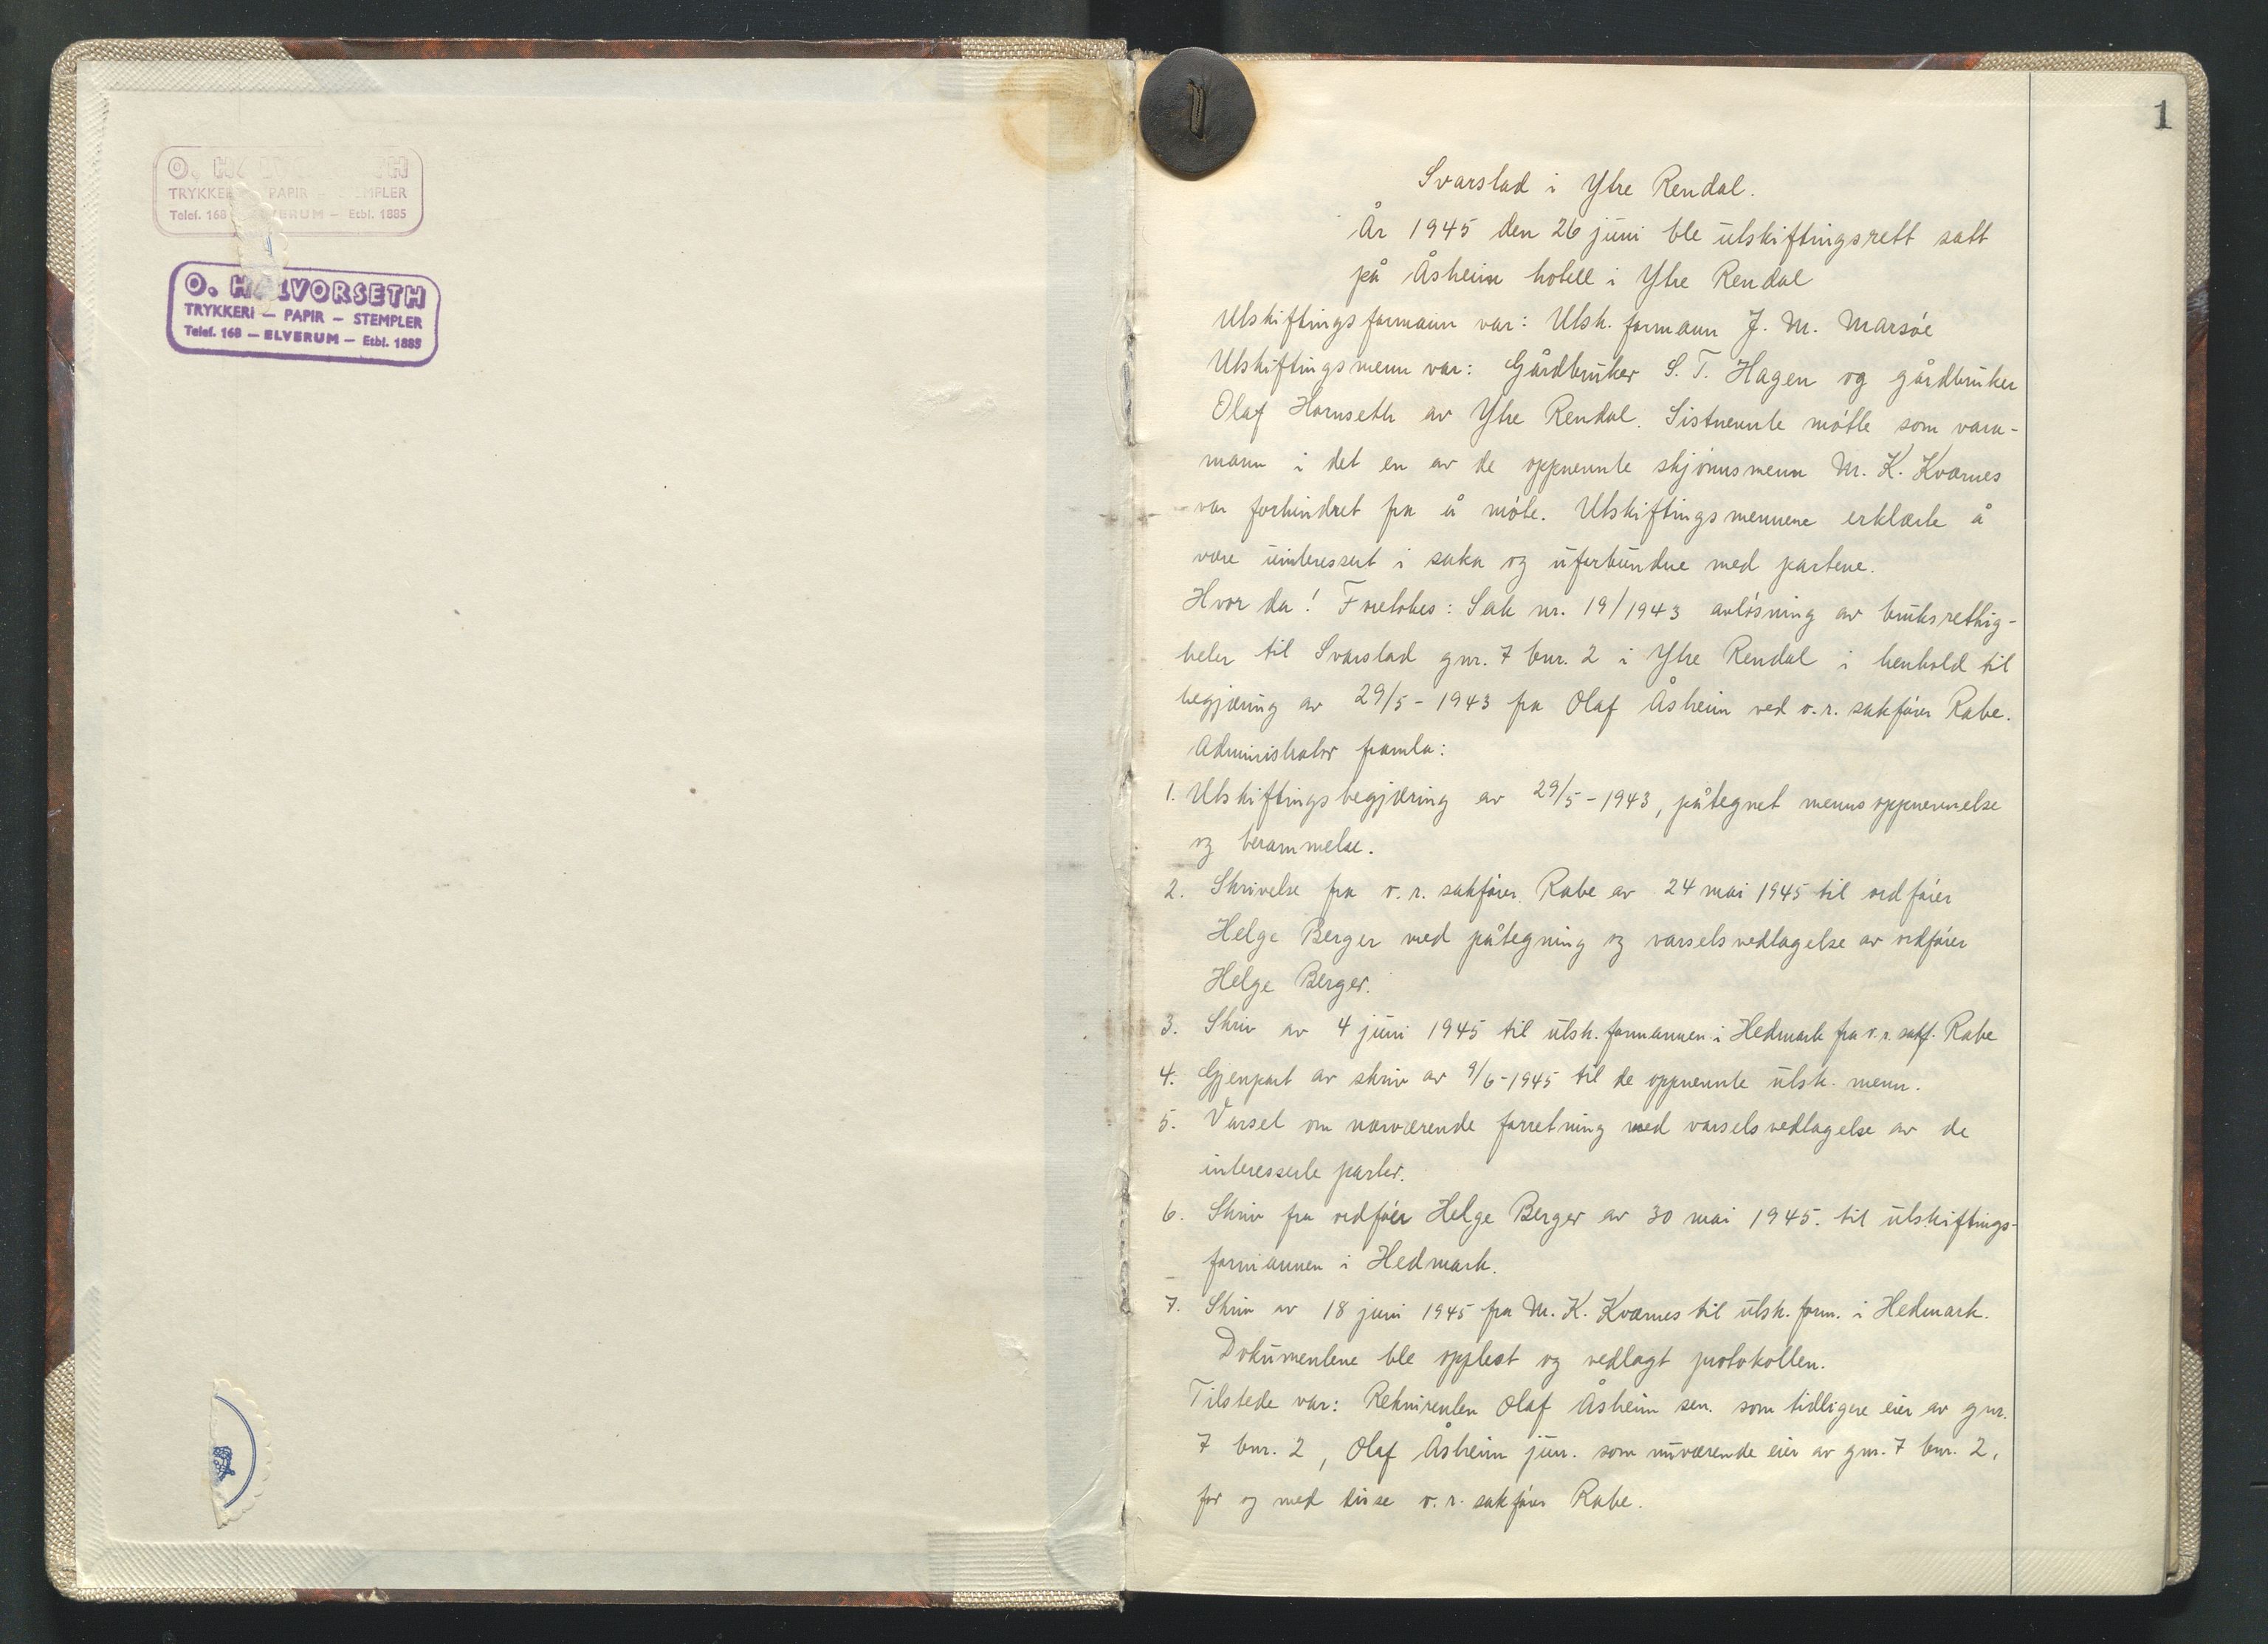 O. H
TRYKKE PAPIR — STEMPLER
Telef. 168 ELVERUM — Etbl. 1885
O. HALVORSETH
TRYKKERI — PAPIR — STEMPLER
Telef. 168 — ELVERUM — Etbl. 1885
1
Svarstad i Ytre Rendal.
År 1945 den 26 juni ble utskiftingsrett satt
på Åsheim hotell i Ytre Rendal
Utskiftingsformann var: Utsk. formann J. M. Marsøe
Utskiftingsmenn var: Gårdbruker S. T. Hagen og gårdbruker
Olaf Hornseth av Ytre Rendal. Sistnevnte møtte som vara-
mann i det en av de oppnevnte skjønnsmenn M. K. Kværnes
var forhindret fra å møte. Utskiftingsmennene erklærte å
være uinteressert i saka og uforbundne med partene.
Hvor da! Foretokes: Sak nr. 19/1943 avløsning av bruksrettig-
heter til Svarstad gnr. 7 bnr. 2 i Ytre Rendal i henhold til
begjæring av 29/5-1943 fra Olaf Åsheim ved o.r. sakfører Rabe.
Administrator framla:
1. Utskiftingsbegjæring av 29/5-1943, påtegnet mennsoppnevnelse
og berammelse.
2. Skrivelse fra o.r. sakfører Rabe av 24 mai 1945 til ordfører
Helge Berger med påtegning og varselsvedtagelse av ordfører
Helge Berger.
3. Skriv av 4 juni 1945 til utsk. formannen i Hedmark fra o.r. sakf. Rabe
4. Gjenpart av skriv av 9/6-1945 til de oppnevnte utsk. menn.
5. Varsel om nærværende forretning med varselsvedtagelse av de
interesserte parter.
6. Skriv fra ordfører Helge Berger av 30 mai 1945. til utskiftings-
formannen i Hedmark.
7. Skriv av 18 juni 1945 fra M. K. Kværnes til utsk. form. i Hedmark.
Dokumentene ble opplest og vedlagt protokollen.
Tilstede var: Rekvirenten Olaf Åsheim sen. som tidligere eier av gnr.
7 bnr. 2, Olaf Åsheim jun. som nuværende eier av gnr. 7 bnr. 2,
for og med disse o.r. sakfører Rabe.